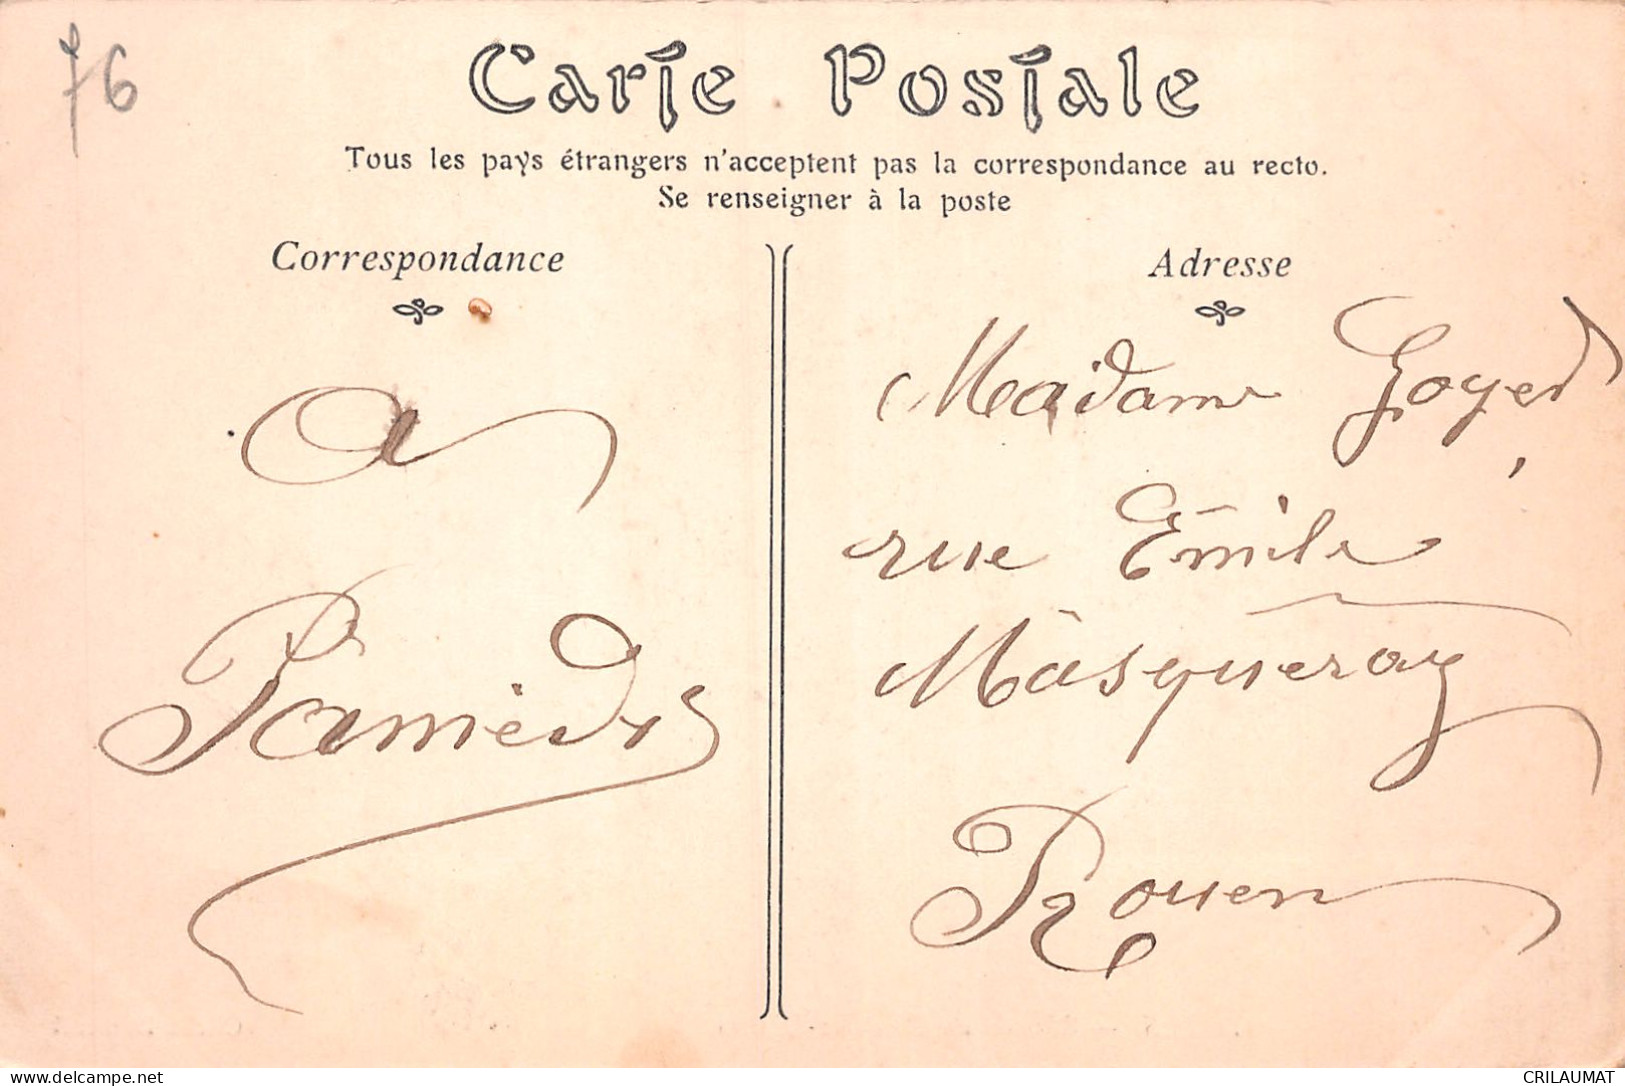 76
Carte Postale
Tous les pays étrangers n'acceptent pas la correspondance au recto.
Se renseigner à la poste
Correspondance
Adresse
a
Samedi
Madame Goyer
rue Emile
Masqueray
Rouen
vendredi 6 septembre 2024
CRILAUMAT